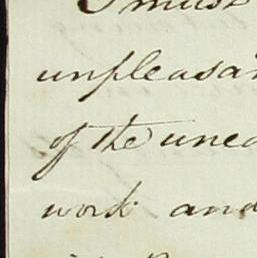 I must
unpleasan
of the unea
work and